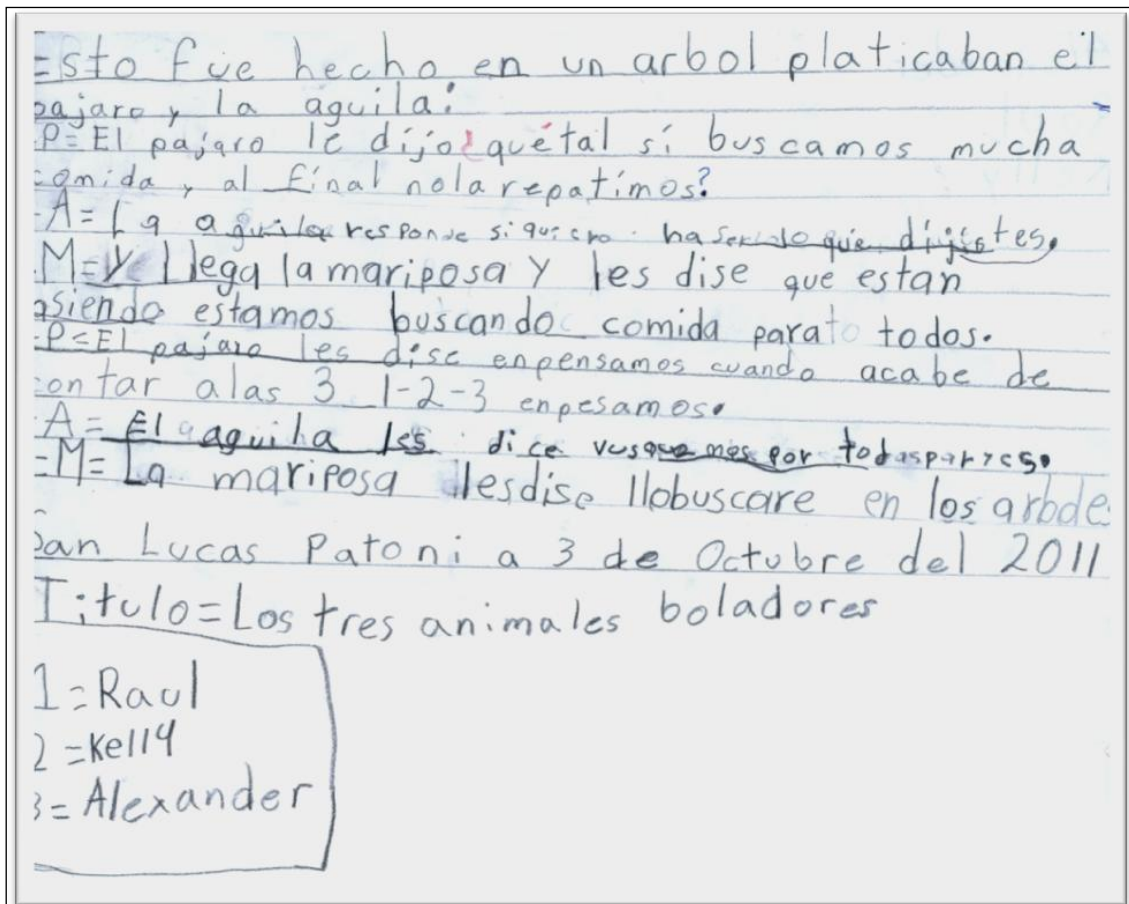 Esto fue hecho en un arbol platicaban el
pajaro y la aguila:
P= El pajaro le dijo¿quétal si buscamos mucha
comida, al final nola repatimos?
A= La aguila responde siquiero haserlo que dijistes.
M= y llega la mariposa y les dise que estan
asiendo estamos buscando comida para todos.
P= El pajaro les dise enpensamos cuando acabe de
contar alas 3 1-2-3 enpesamos.
A= El aguila les dice vusquemos por todaspartes.
M= La mariposa lesdise llobuscare en los arboles
San Lucas Patoni a 3 de Octubre del 2011
Titulo=Los tres animales boladores
1=Raul
2=Kelly
3=Alexander